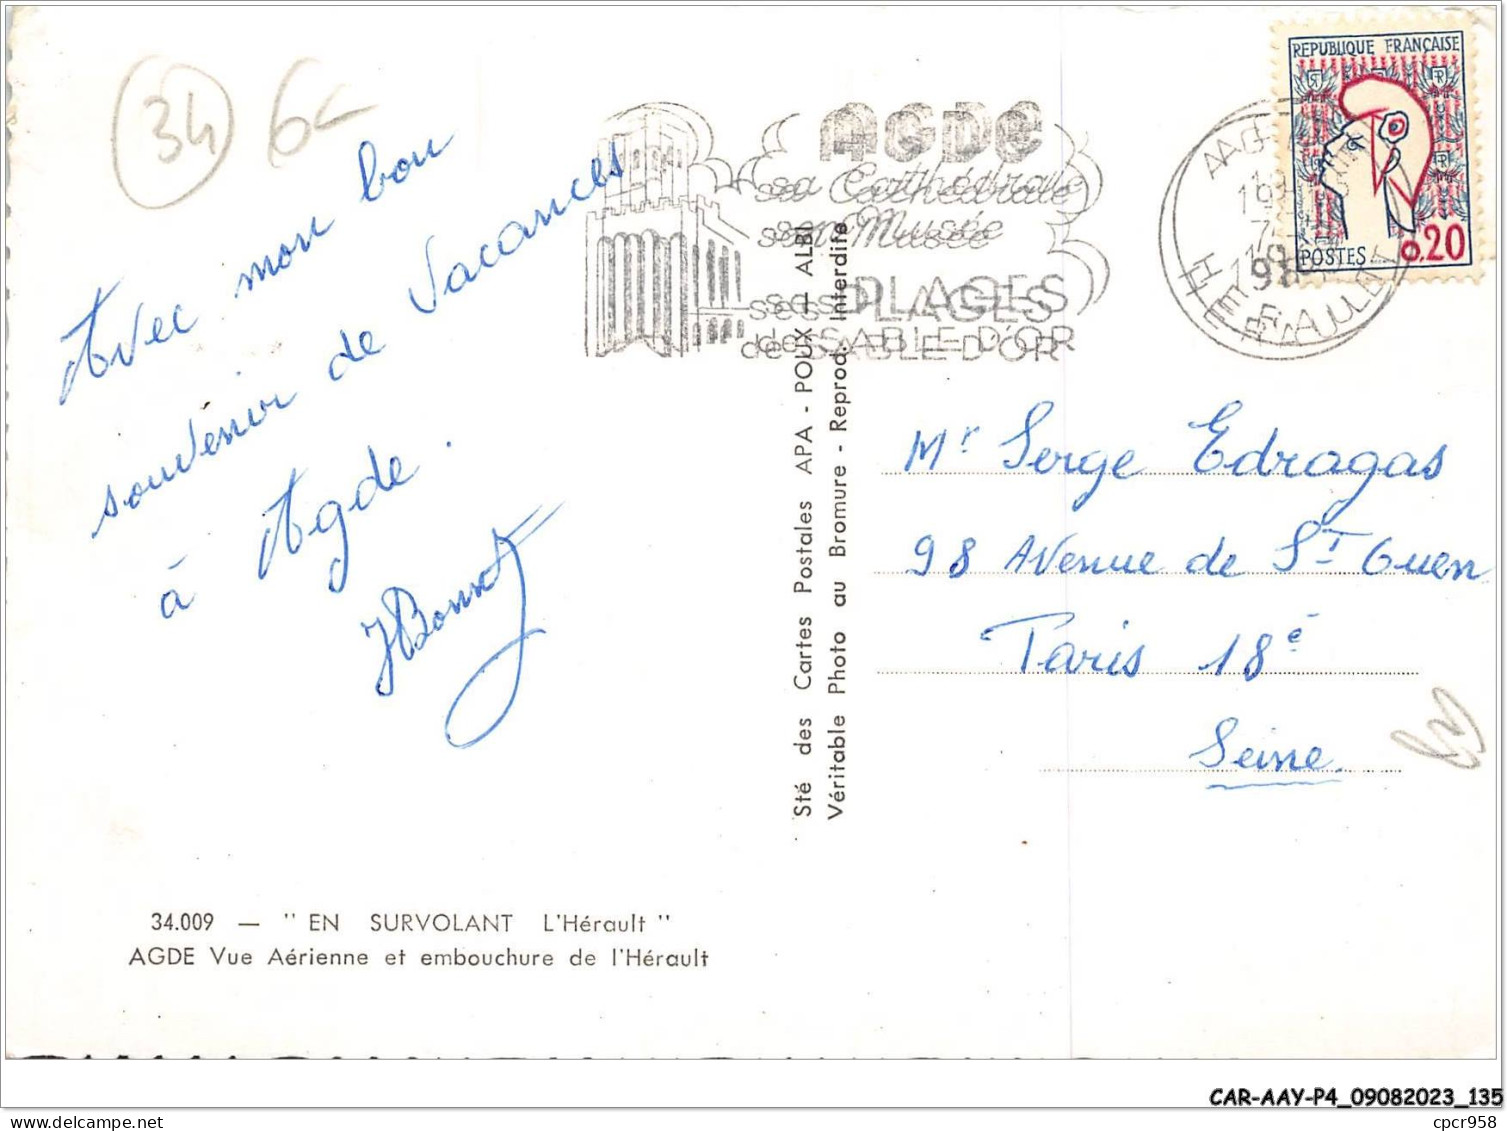 34 6€
Avec mon bon
souvenir de Vacances
à Agde.
JBonnot
34.009 — " EN SURVOLANT L'Hérault "
AGDE Vue Aérienne et embouchure de l'Hérault
Sté des Cartes Postales APA - POUX — ALBI
Véritable Photo au Bromure - Reprod. Interdite
AGDE
sa Cathédrale
son Musée
ses PLAGES
de SABLE D'OR
AGDE
HERAULT
REPUBLIQUE FRANÇAISE
POSTES 0,20
Mr Serge Edragas
98 Avenue de St Ouen
Paris 18è
Seine.
CAR-AAY-P4_09082023_135
cpcr958